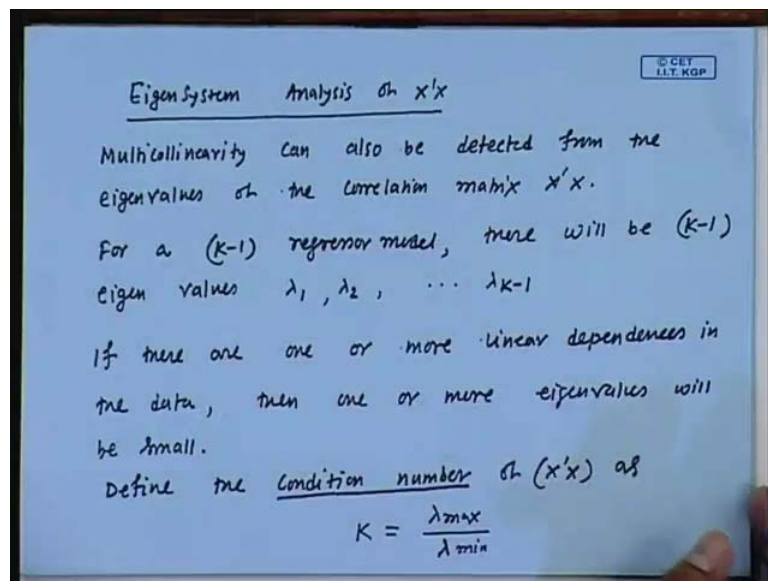 © CET
I.I.T. KGP
Eigensystem Analysis of X'X
Multicollinearity can also be detected from the
eigenvalues of the correlation matrix X'X.
For a (K-1) regressor model, there will be (K-1)
eigen values λ₁, λ₂, ... λK-1
If there are one or more linear dependences in
the data, then one or more eigenvalues will
be small.
Define the condition number of (X'X) as
K = λmax / λmin